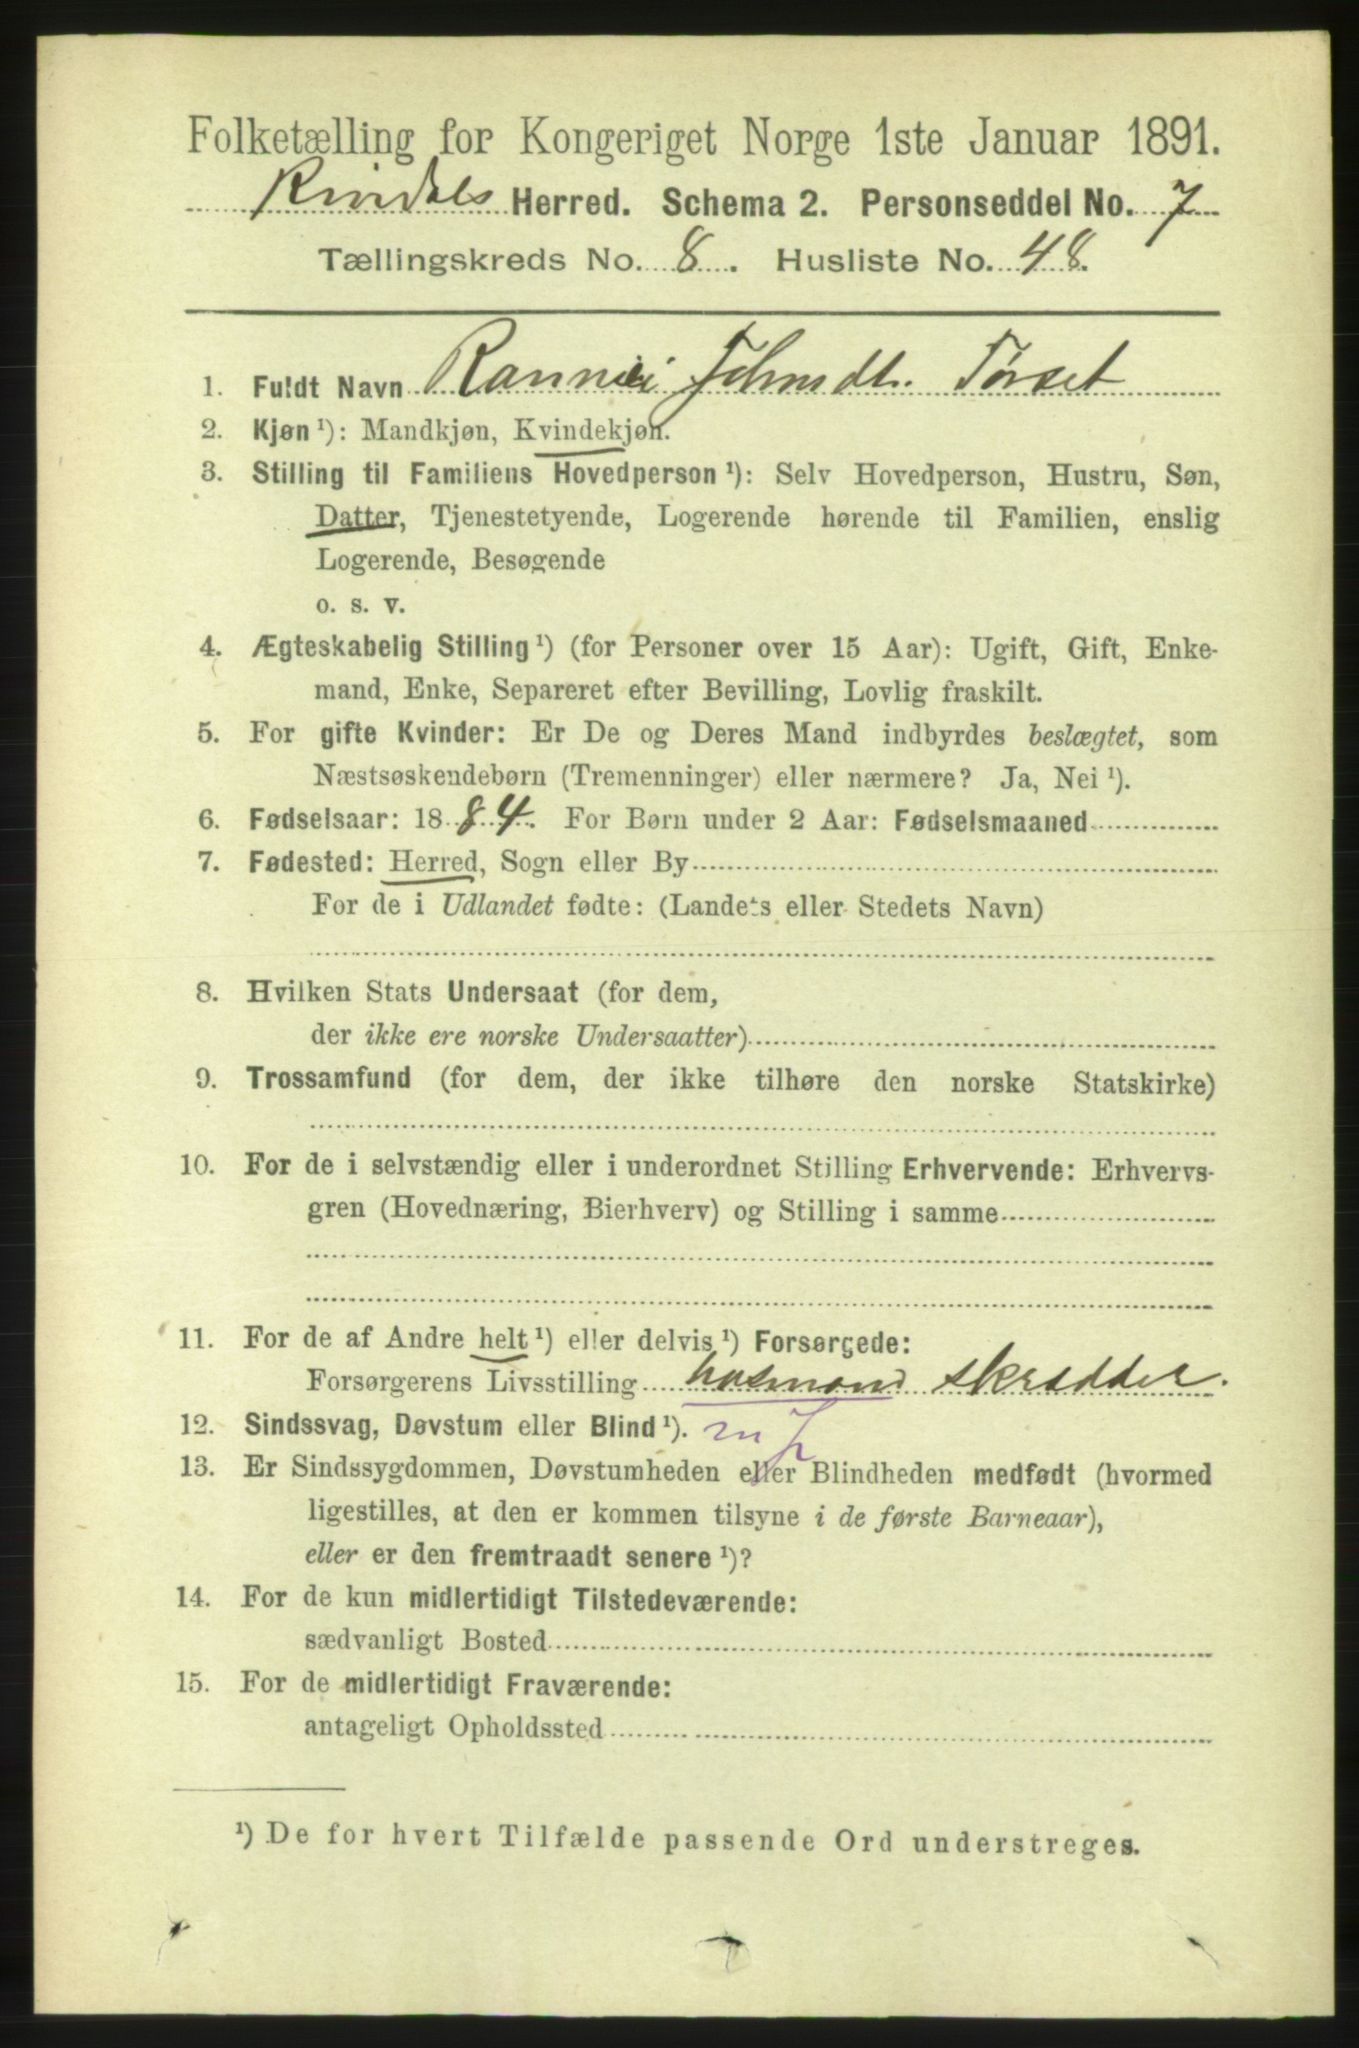 Folketælling for Kongeriget Norge 1ste Januar 1891.
Rindals Herred. Schema 2. Personseddel No. 7
Tællingskreds No. 8. Husliste No. 48.
1. Fuldt Navn Rannei Johnsdt. Törset
2. Kjøn ¹): Mandkjøn, Kvindekjøn.
3. Stilling til Familiens Hovedperson ¹): Selv Hovedperson, Hustru, Søn,
Datter, Tjenestetyende, Logerende hørende til Familien, enslig
Logerende, Besøgende
o. s. v.
4. Ægteskabelig Stilling ¹) (for Personer over 15 Aar): Ugift, Gift, Enke-
mand, Enke, Separeret efter Bevilling, Lovlig fraskilt.
5. For gifte Kvinder: Er De og Deres Mand indbyrdes beslægtet, som
Næstsøskendebørn (Tremenninger) eller nærmere? Ja, Nei ¹).
6. Fødselsaar: 1884. For Børn under 2 Aar: Fødselsmaaned
7. Fødested: Herred, Sogn eller By
For de i Udlandet fødte: (Landets eller Stedets Navn)
8. Hvilken Stats Undersaat (for dem,
der ikke ere norske Undersaatter)
9. Trossamfund (for dem, der ikke tilhøre den norske Statskirke)
10. For de i selvstændig eller i underordnet Stilling Erhvervende: Erhvervs-
gren (Hovednæring, Bierhverv) og Stilling i samme
11. For de af Andre helt ¹) eller delvis ¹) Forsørgede:
Forsørgerens Livsstilling husmand skrædder.
12. Sindssvag, Døvstum eller Blind ¹).
13. Er Sindssygdommen, Døvstumheden eller Blindheden medfødt (hvormed
ligestilles, at den er kommen tilsyne i de første Barneaar),
eller er den fremtraadt senere ¹)?
14. For de kun midlertidigt Tilstedeværende:
sædvanligt Bosted
15. For de midlertidigt Fraværende:
antageligt Opholdssted
¹) De for hvert Tilfælde passende Ord understreges.